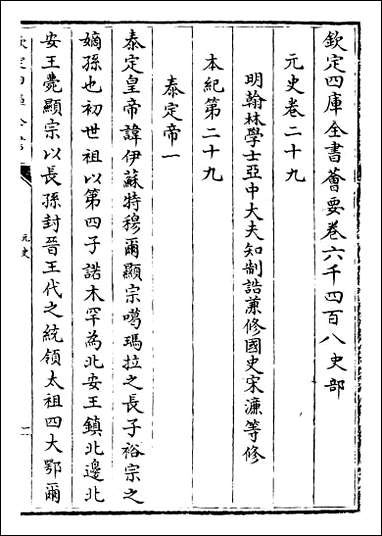 欽定四庫全書薈要卷六千四百八史部
元史卷二十九
明翰林學士亞中大夫知制誥兼修國史宋濂等修
本紀第二十九
泰定帝一
泰定皇帝諱伊蘇特穆爾顯宗噶瑪拉之長子裕宗之
嫡孫也初世祖以第四子諾木罕為北安王鎮北邊北
安王薨顯宗以長孫封晉王代之統領太祖四大鄂爾
欽定四庫全書
元史